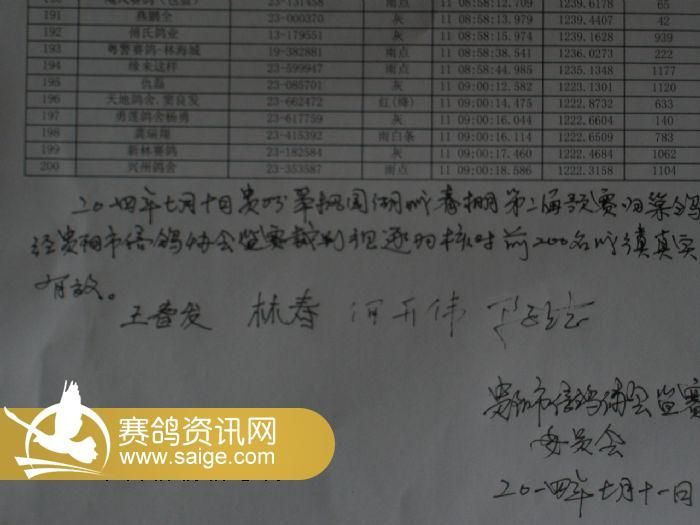 191 燕鹏全 23-000370 灰 11 08:58:13.979 1239.4407 42
192 傅氏鸽业 13-179551 灰 11 08:58:15.974 1239.1628 939
193 粤警赛鸽-林海城 19-382881 雨点 11 08:58:38.541 1236.0273 222
194 缘来这样 23-599947 雨点 11 08:58:44.985 1235.1348 1177
195 仇磊 23-085701 灰 11 09:00:12.582 1223.1301 1120
196 天地鸽舍.窦良发 23-662472 红(绛) 11 09:00:14.475 1222.8732 633
197 勇莲鸽舍杨勇 23-617759 灰 11 09:00:16.044 1222.6604 140
198 龚瑞翔 23-415392 雨白条 11 09:00:16.114 1222.6509 783
199 新林赛鸽 23-182584 灰 11 09:00:17.460 1222.4684 1062
200 兴州鸽舍 23-353587 雨点 11 09:00:18.586 1222.3158 1104
二〇一四年七月十日贵州翠拥国湖 春棚第二届 赛归巢鸽
经贵阳市信鸽协会监赛裁判组逐羽核对前200名成绩真实
有效。
王香发 林春 何开伟
贵阳市信鸽协会监赛
委员会
二〇一四年七月十一日
赛鸽资讯网
www.saige.com